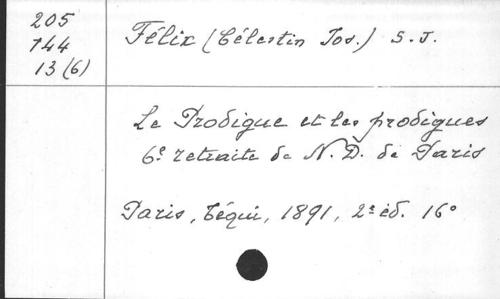 205
744
13 (6)
Félix (Célestin Jos.) S.J.
Le Prodigue et les prodigues
6e retraite de N. D. de Paris
Paris, Téqui, 1891, 2e éd. 16°